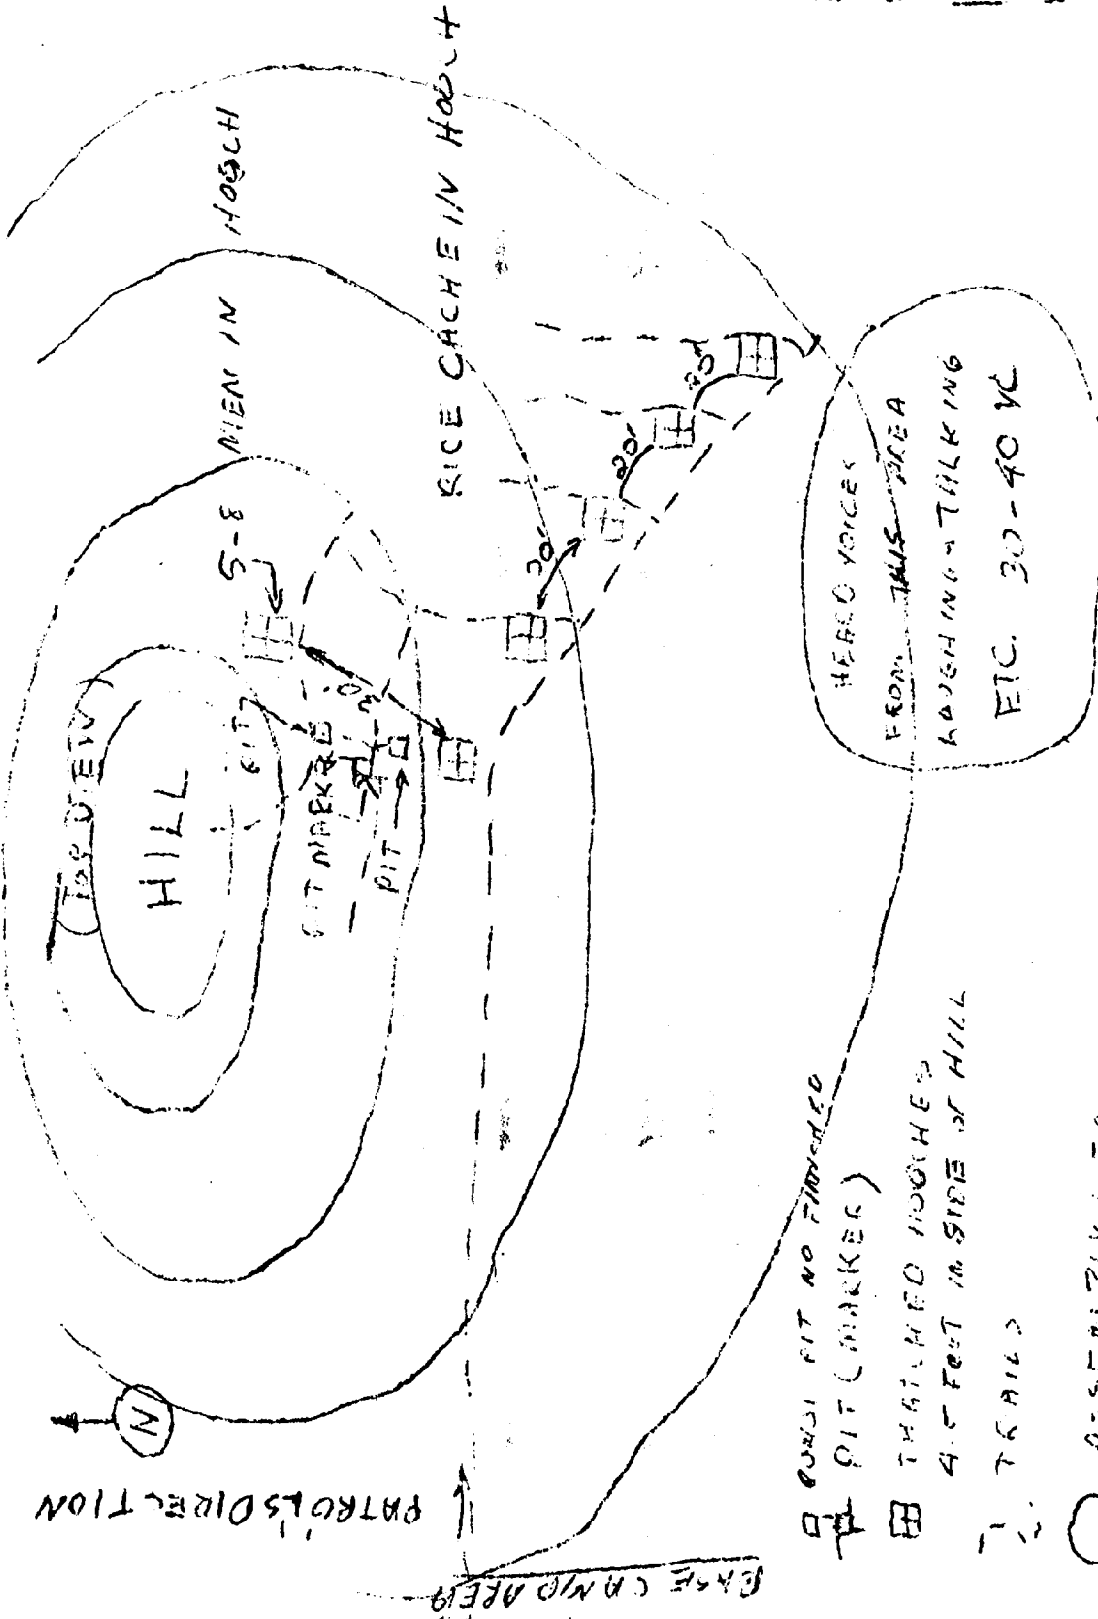 (TOP VIEW)
HILL
5-8 MEN IN HOOCH
RICE CACHE IN HOOCH
PIT
PIT MARKER
PIT
30'
30'
20'
20'
HEARD VOICES
FROM THIS AREA
LAUGHING - TALKING
ETC. 30-40 VC
N
PATROL'S DIRECTION
BASE CAMP AREA
PUNJI PIT NO FINISHED
PIT (MARKER)
THATCHED HOOCHES
4-5 FEET IN SIDE OF HILL
TRAILS